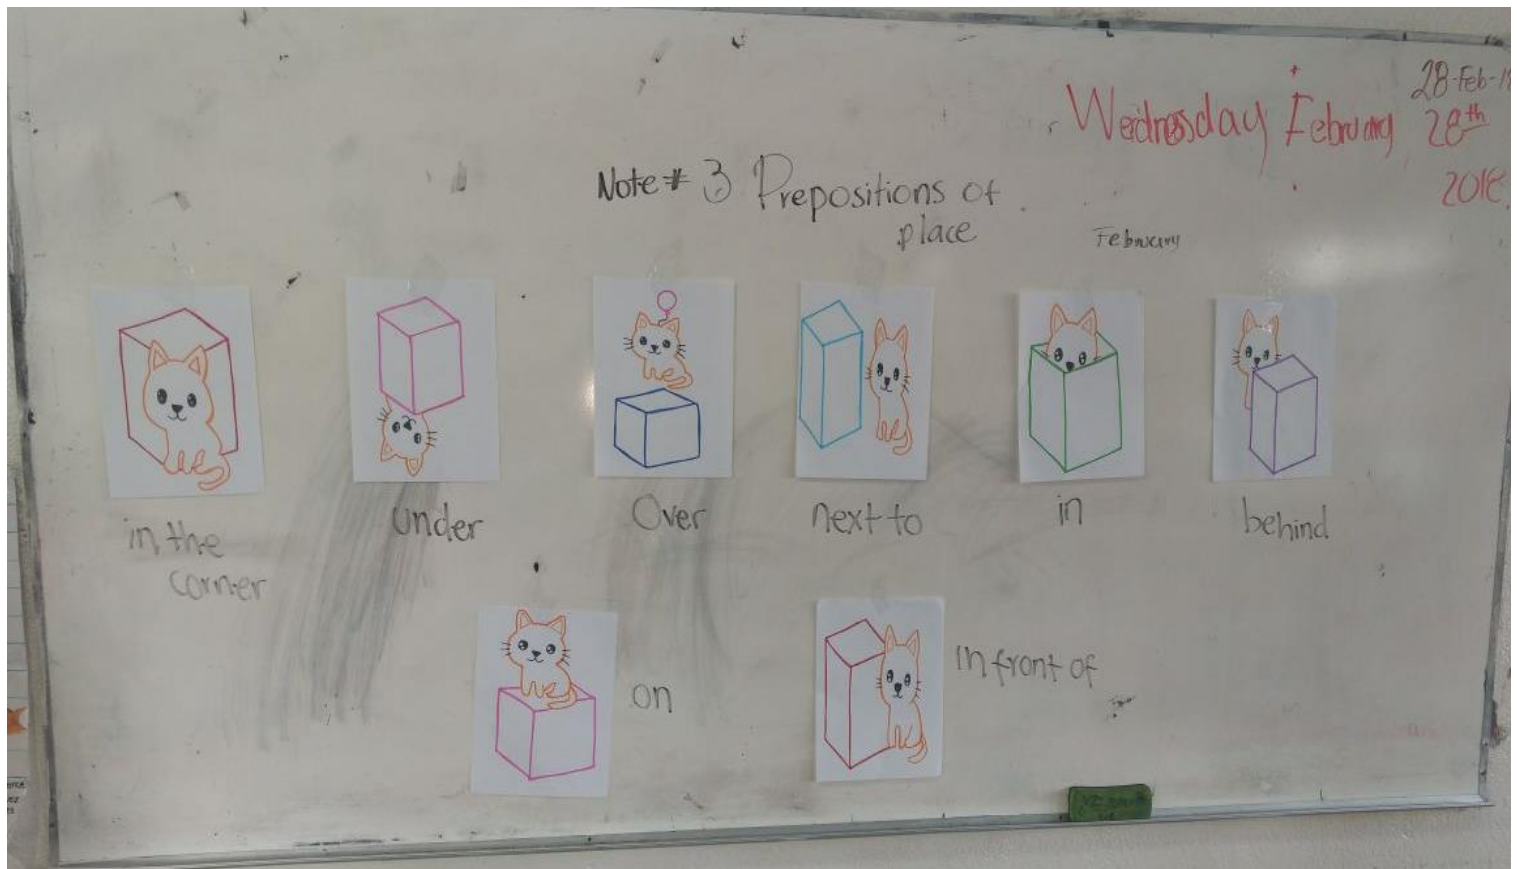 28-Feb-18
Wednesday February 28th
2018
Note # 3 Prepositions of
place
February
in the
corner
under
Over
next to
in
behind
on
in front of